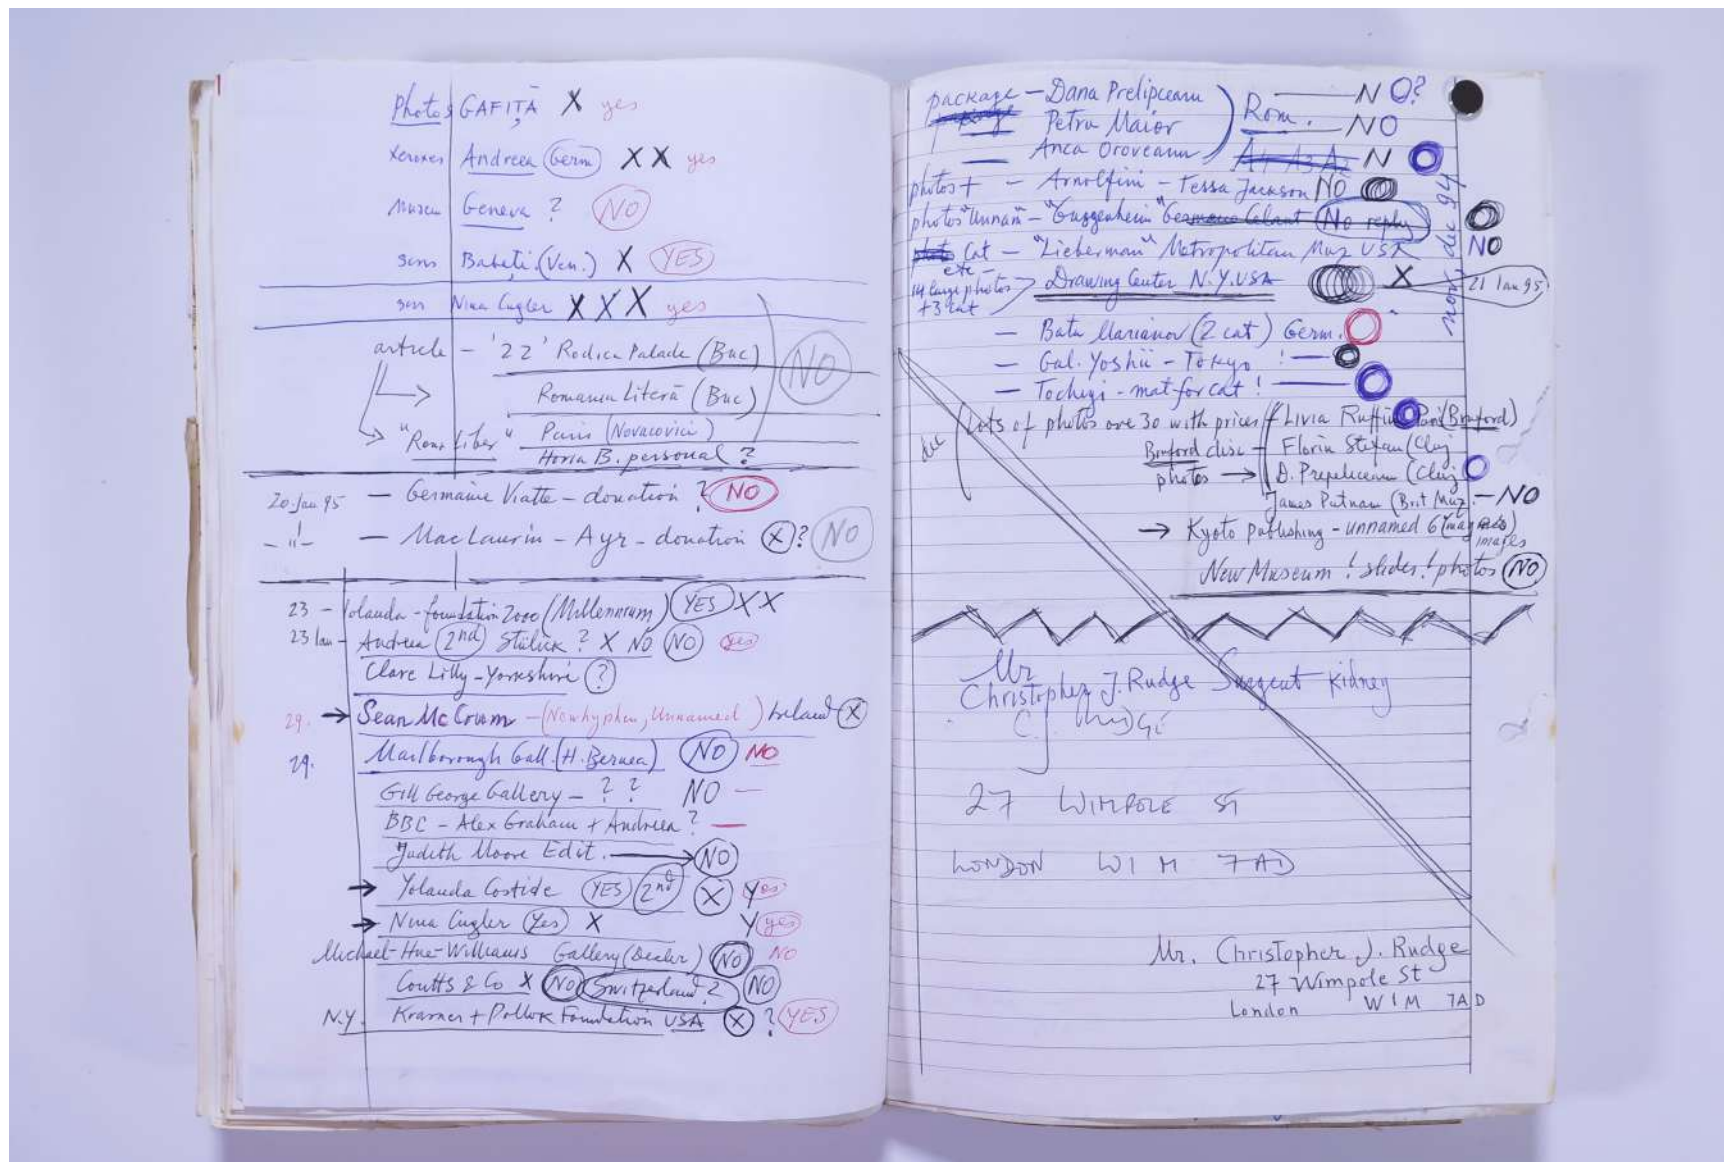 Photos GAFIȚĂ X yes
Xeroxes Andreea (Germ) X X yes
Geneva ? NO
Babeti (Ven.) X YES
Nina Cugler X X X yes
article - '22' Rodica Palade (Buc)
NO
Romania Literă (Buc)
"Rom Liber" Paris (Novacovici)
Horia B. personal ?
20 Jan 95 - Germaine Viatte - donation ? NO
-"- - MacLaurin - Ayr - donation X ? NO
23 - Yolanda - foundation 2000 (Millennium) YES X X
23 Ian - Andreea 2nd Stülick ? X NO NO yes
Clare Lilly - Yorkshire ?
29. → Sean McCrum - (Newhyphen, Unnamed) Ireland X
29. Marlborough Gall. (H. Bernea) NO NO
Gill George Gallery - ? ? NO -
BBC - Alex Graham + Andreea ? -
Judith Moore Edit. → NO
→ Yolanda Costide YES 2nd X Yes
→ Nina Cugler Yes X Y yes
Michael Hue-Williams Gallery (Dealer) NO NO
Coutts & Co X NO Switzerland ? NO
N.Y. Krasner + Pollok Foundation USA X ? YES
package - Dana Prelipceanu - NO?
Petru Maior Rom. - NO
- Anca Oroveanu A4 A3 A2 N O
photos + - Arnolfini - Tessa Jackson NO
photos "Unnam" - "Guggenheim" Germano Celant No reply
photo Cat - "Lieberman" Metropolitan Muz USA NO
etc -
14 large photos + 3 cat Drawing Center N.Y. USA X 21 Ian 95
nov, dec 94
- Bata Marianov (2 cat) Germ.
- Gal. Yoshii - Tokyo ! -
- Tochigi - mat for cat ! -
dec
Lots of photos ove 30 with prices Livia Ruffin Paris (Binford)
Binford disc - Florin Stefan (Cluj
photos → D. Prepeliceanu (Cluj
James Putnam (Brit Muz. - NO
→ Kyoto publishing - unnamed 6 images
New Museum ! slides ! photos NO
Mr
Christopher J. Rudge Surgeut Kidney
C. J. RUDGE
27 WIMPOLE ST
LONDON W1M 7AD
Mr. Christopher J. Rudge
27 Wimpole St
London W1M 7AD